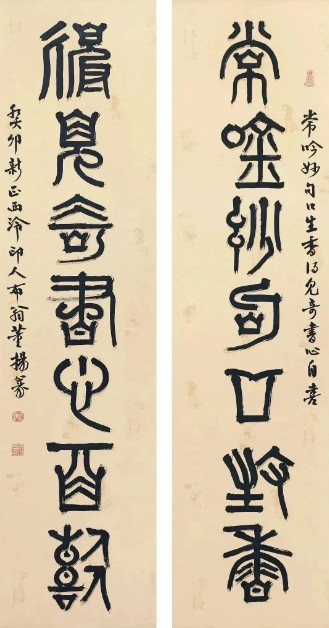 常吟妙句口生香得見奇書心自喜
常唫妙句口生香
得見奇書心自憙
癸卯新正西泠印人布翁董揚篆